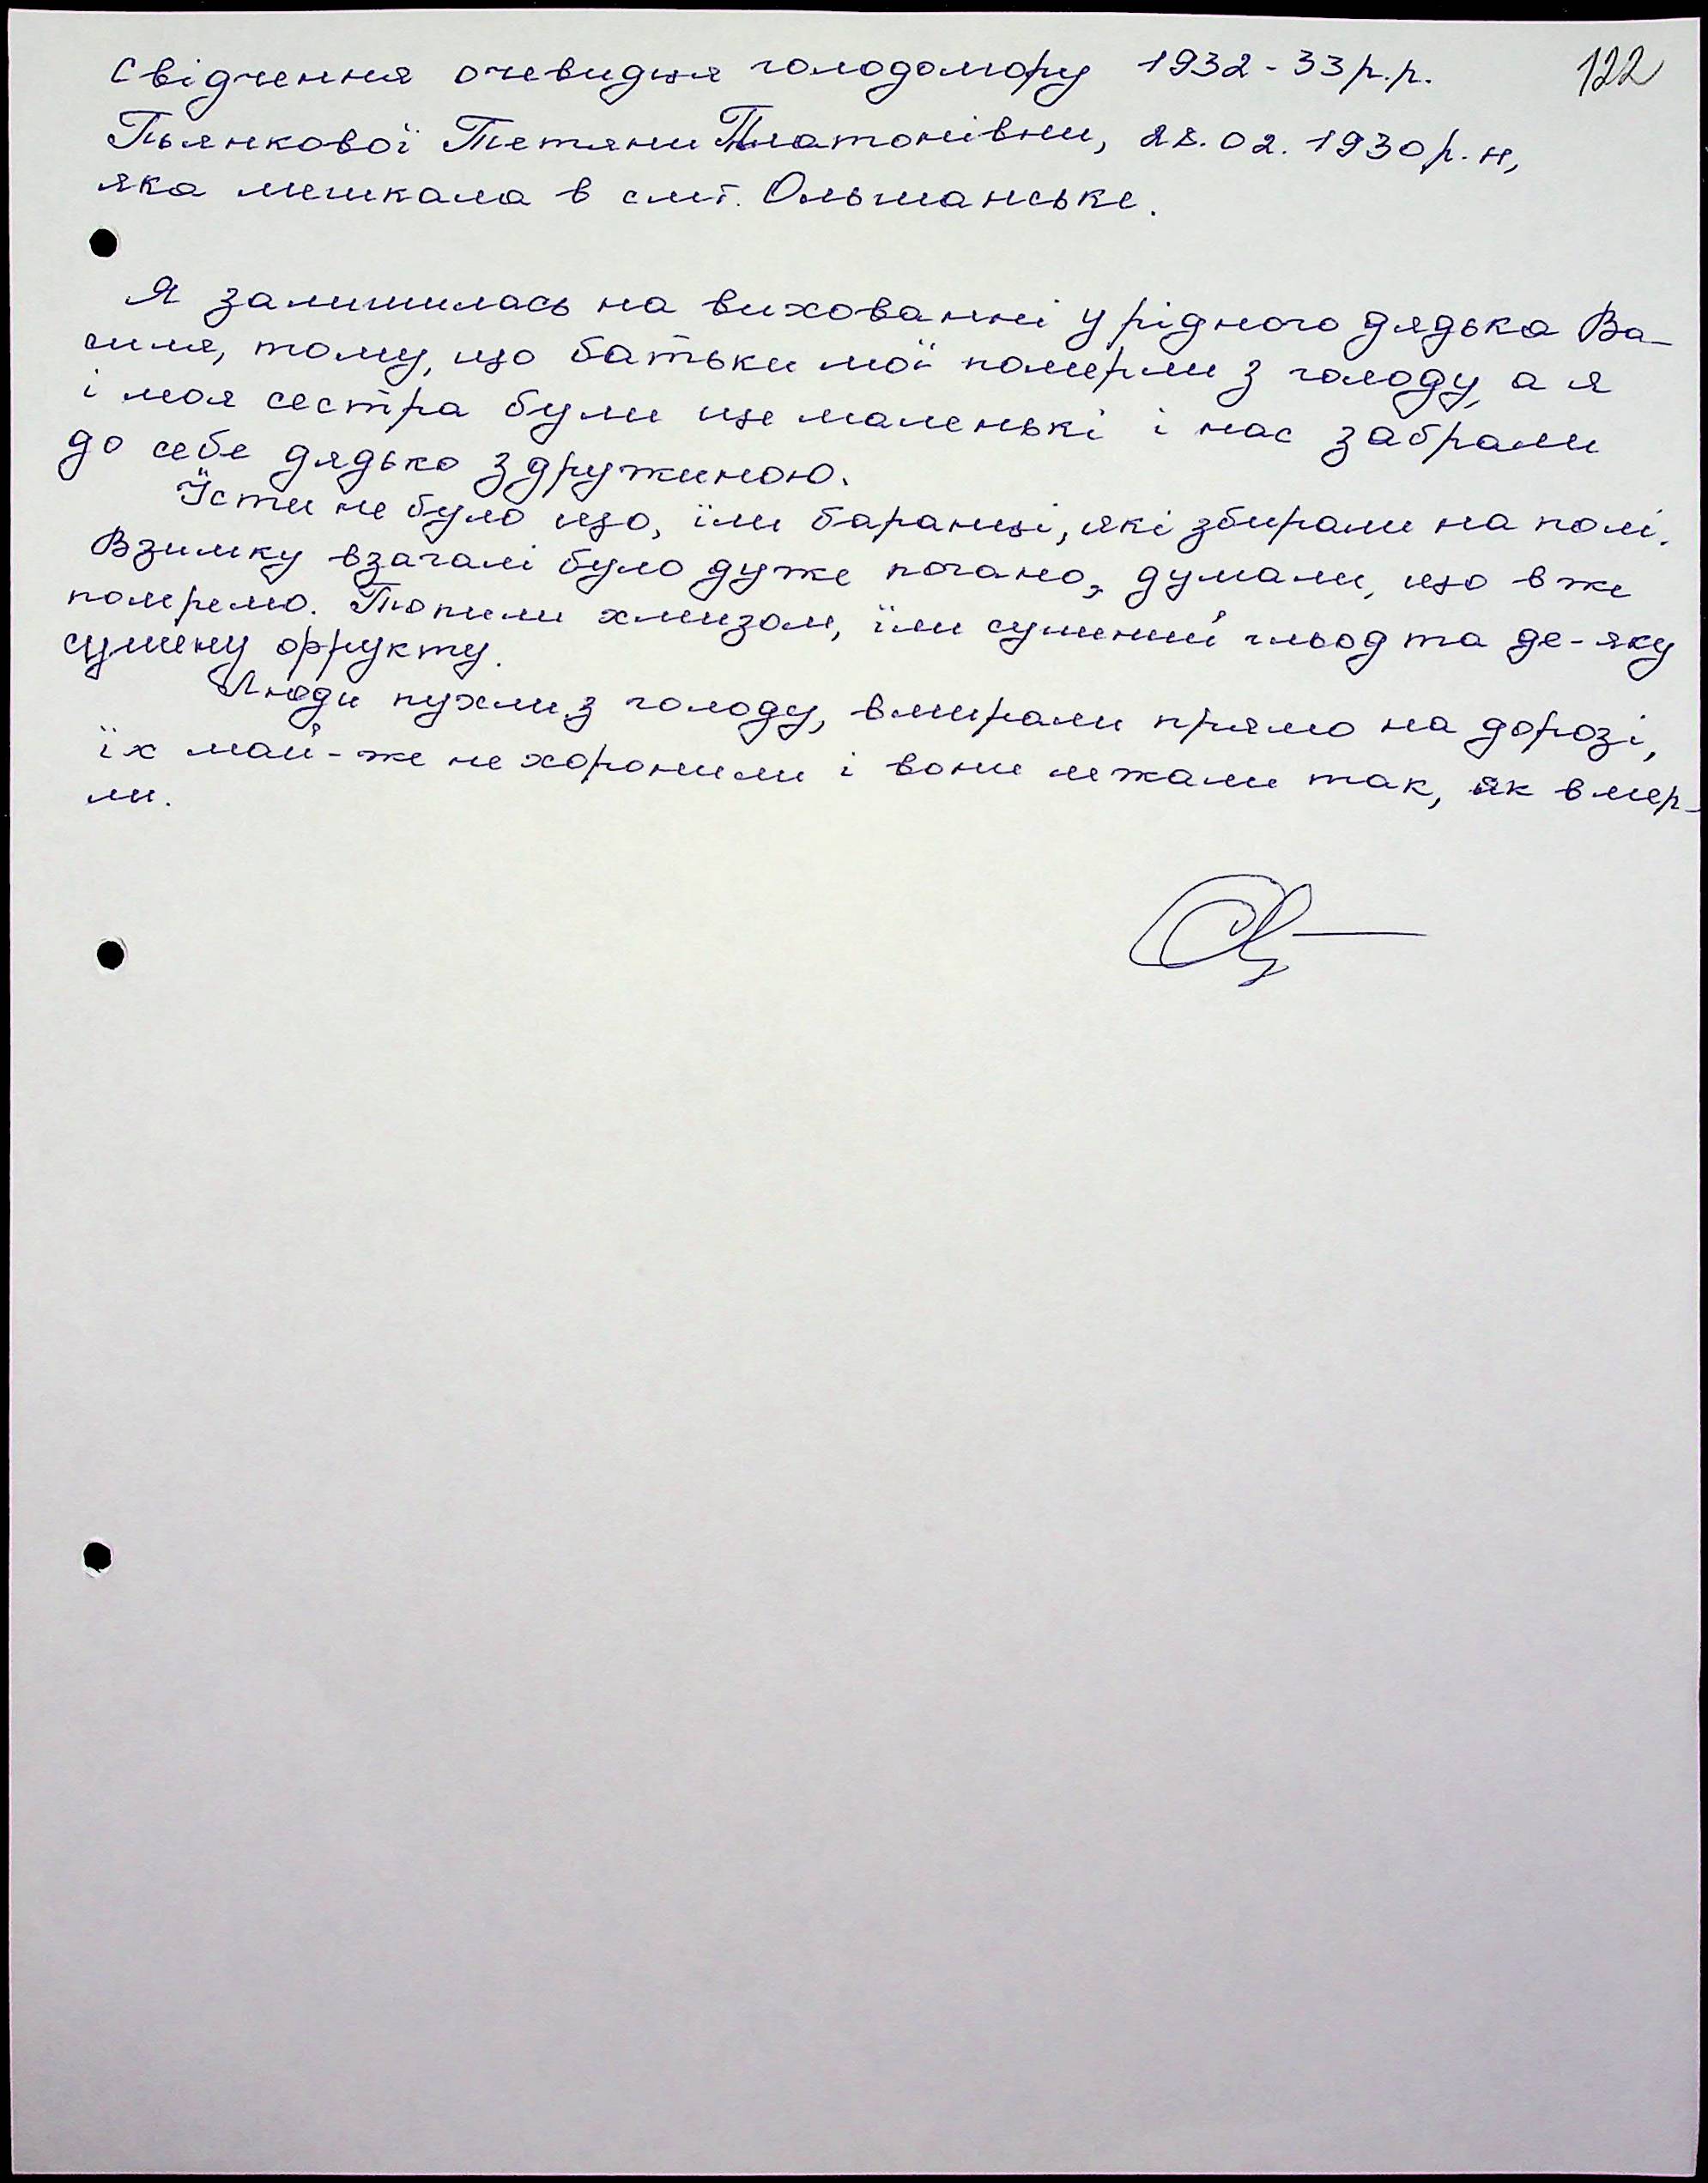 Свідчення очевидця голодомору 1932-33 р.р. 122
Пьянкової Тетяни Платонівни, 28.02.1930 р.н,
яка мешкала в смт. Ольшанське.
Я залишилась на вихованні у рідного дядька Ва-
силя, тому, що батьки мої померли з голоду, а я
і моя сестра були ще маленькі і нас забрали
до себе дядько з дружиною.
Їсти не було що, їли баранці, які збирали на полі.
Взимку взагалі було дуже погано, думали, що вже
помремо. Топили хмизом, їли сушений гльод та де-яку
сушену фрукту.
Люди пухли з голоду, вмирали прямо на дорозі,
їх май-же не хоронили і вони лежали так, як вмер-
ли.